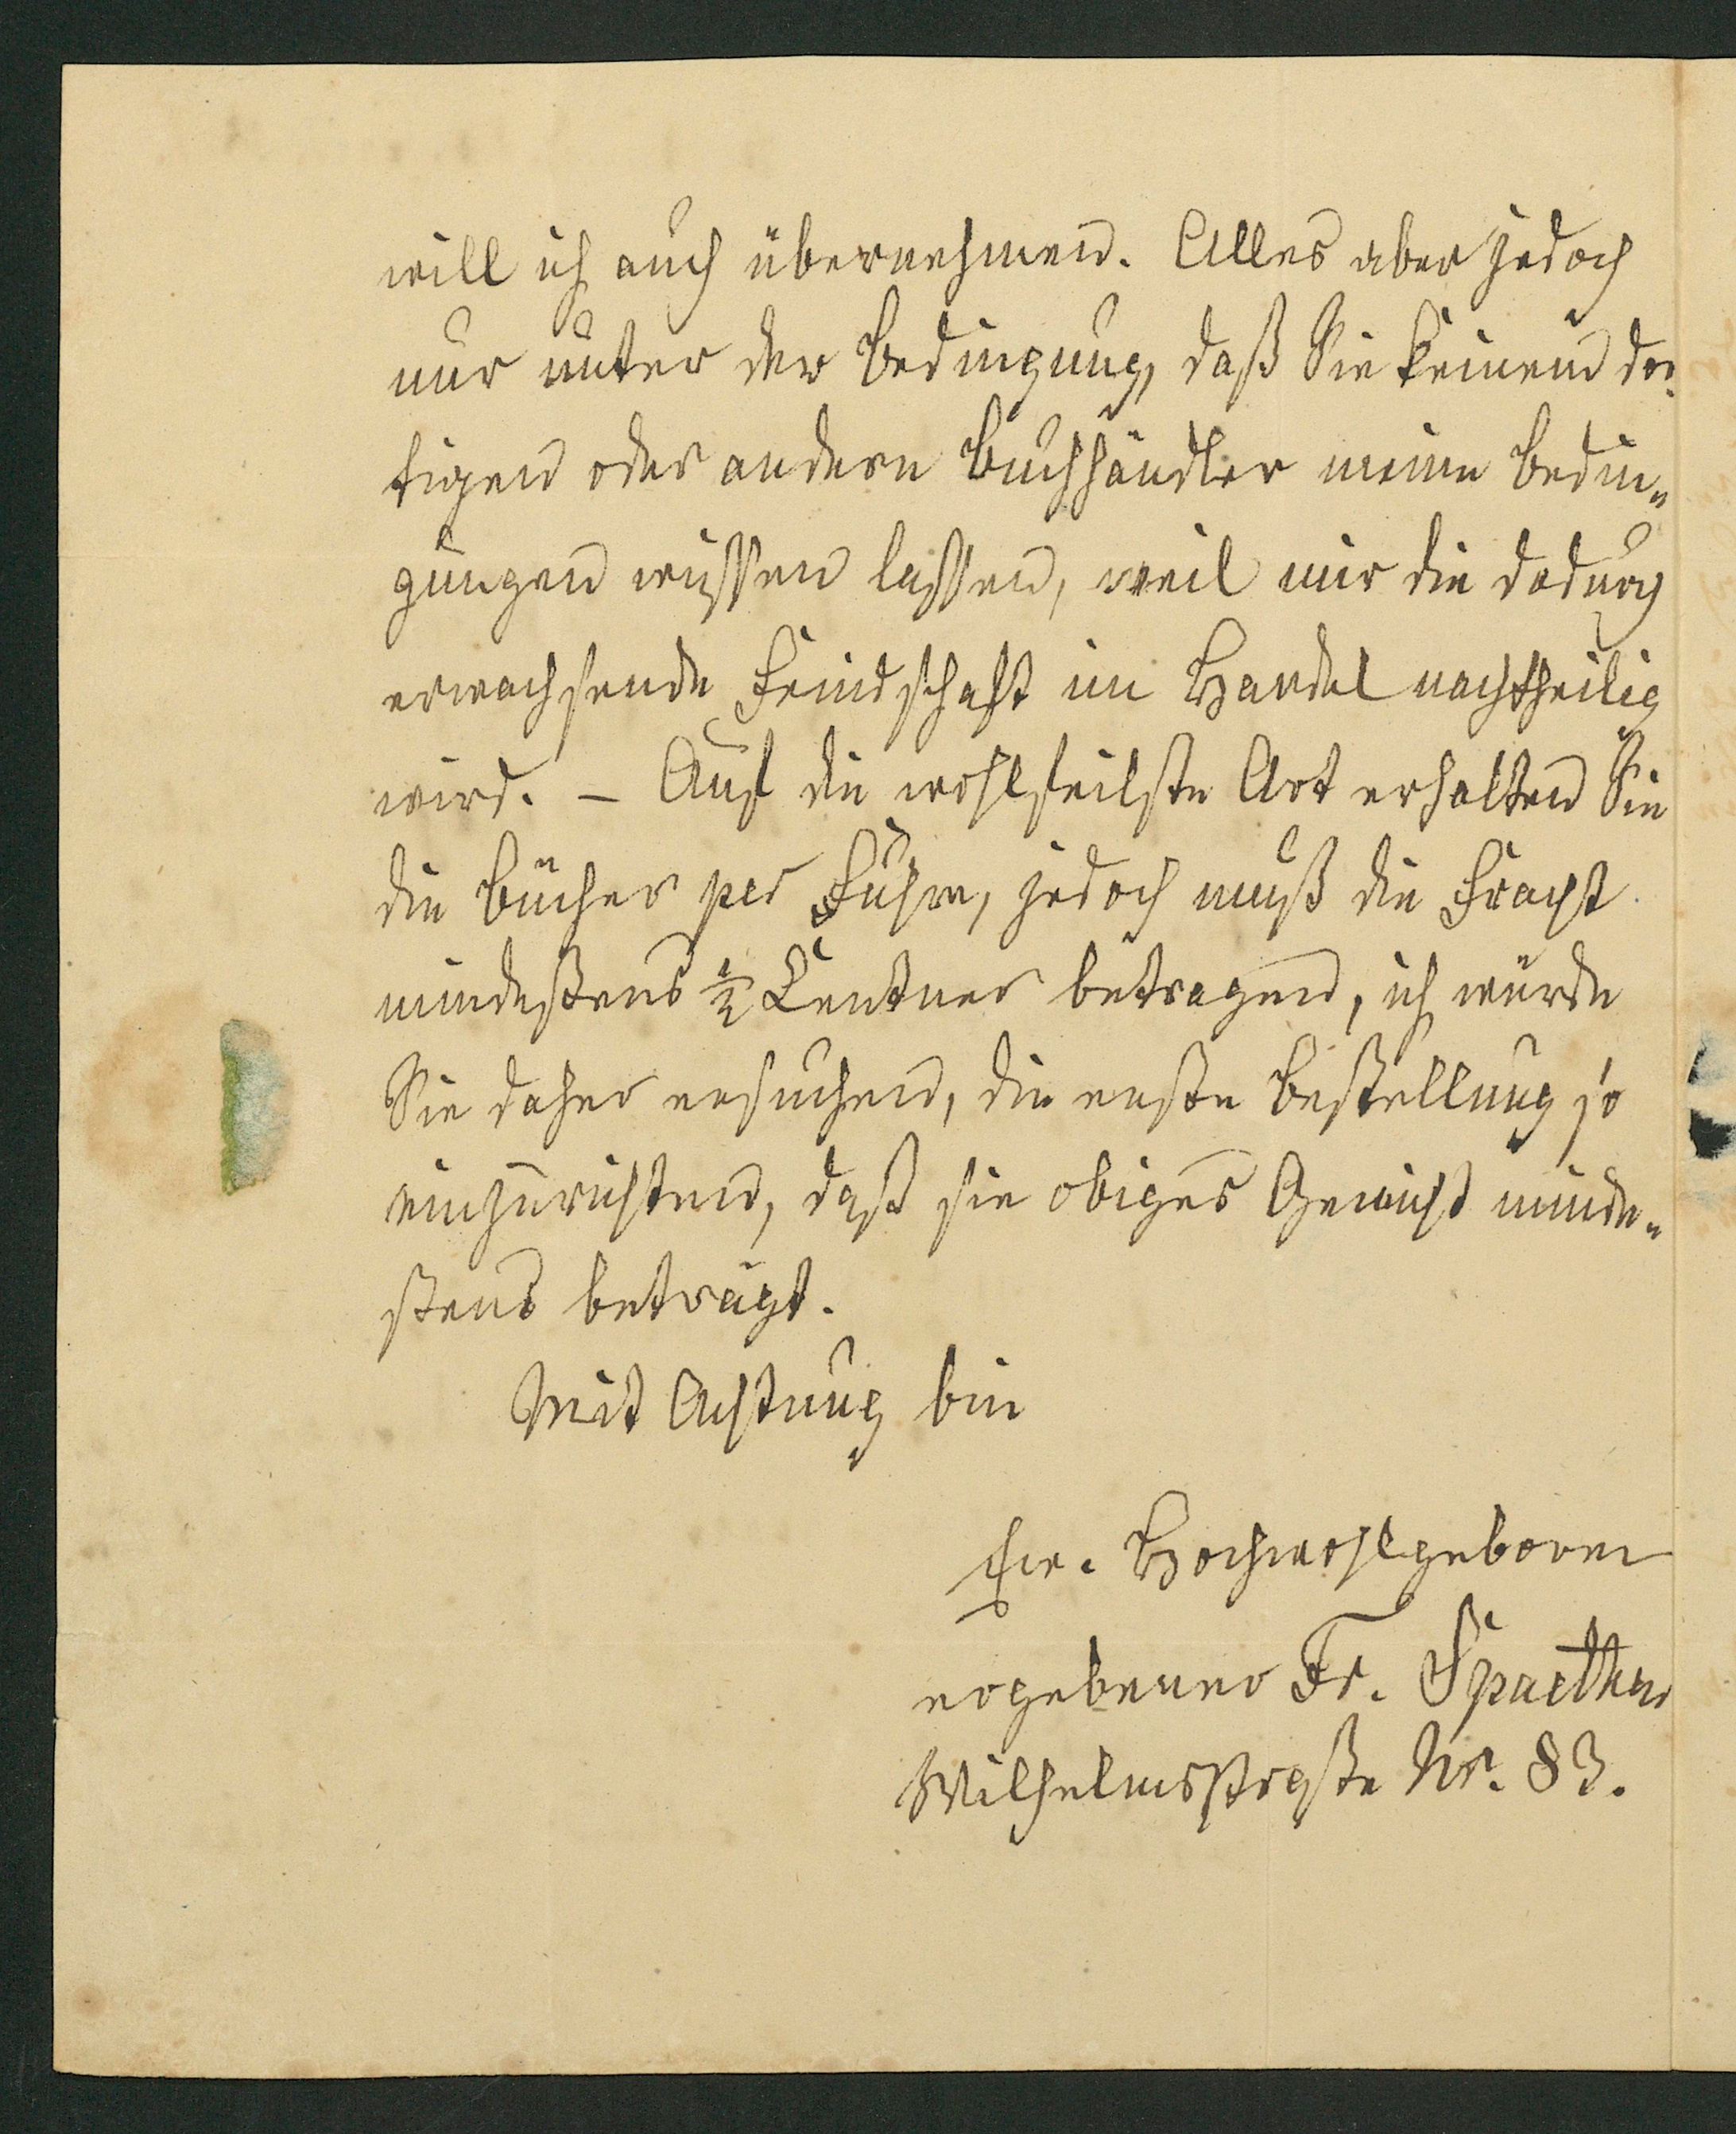 will ich auch übernehmen. Alles aber jedoch
nur unter der Bedingung, daß Sie keinem dor-
tigen oder andern Buchhändler meine Bedin-
gungen wissen lassen, weil mir die dadurch
erwachsende Feindschaft im Handel nachtheilig
wird. – Auf die wohlfeilste Art erhalten Sie
die Bücher per Fuhre, jedoch muß die Fracht
mindestens ½ Centner betragen, ich würde
Sie daher ersuchen, die erste Bestellung so
einzurichten, daß sie obiges Gewicht minde-
stens beträgt.
Mit Achtung bin
Ew. Hochwohlgeboren
ergebener Fr. Spaethen
Wilhelmsstraße Nr. 83.